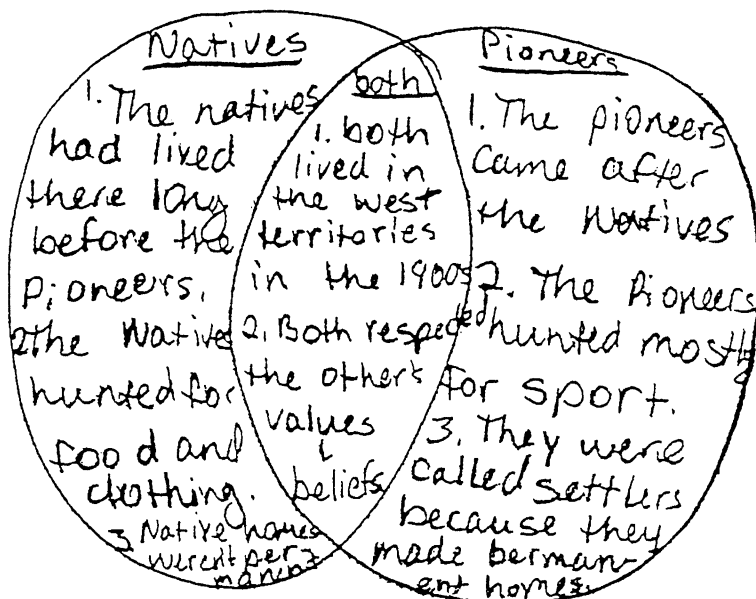 Natives
1. The natives
had lived
there long
before the
pioneers.
2. The Natives
hunted for
food and
clothing.
3 Native homes
weren't per-
manent
both
1. both
lived in
the west
territories
in the 1900s
2. Both respected
the other's
values
&
beliefs
Pioneers
1. The pioneers
came after
the Natives
2. The Pioneers
hunted mostly
for sport.
3. They were
called settlers
because they
made berman-
ent homes.